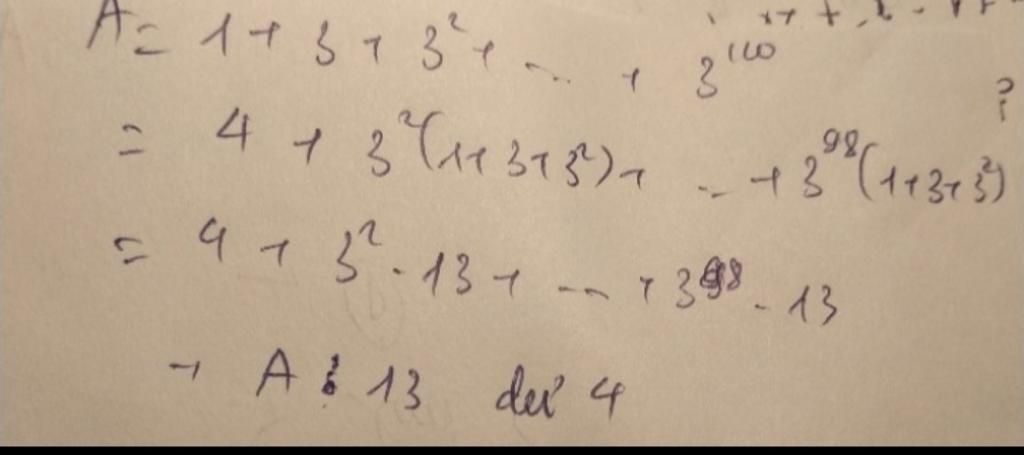 A = 1 + 3 + 3² + ... + 3¹⁰⁰
= 4 + 3²(1+3+3²) + ... + 3⁹⁸(1+3+3²)
?
= 4 + 3² . 13 + ... + 3⁹⁸ . 13
→ A ⋮ 13 dư 4